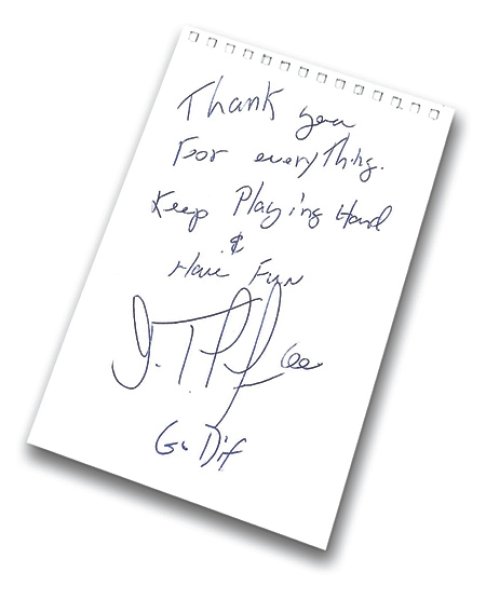 Thank you
For everything.
Keep Playing Hard
&
Have Fun
J.T.
Go